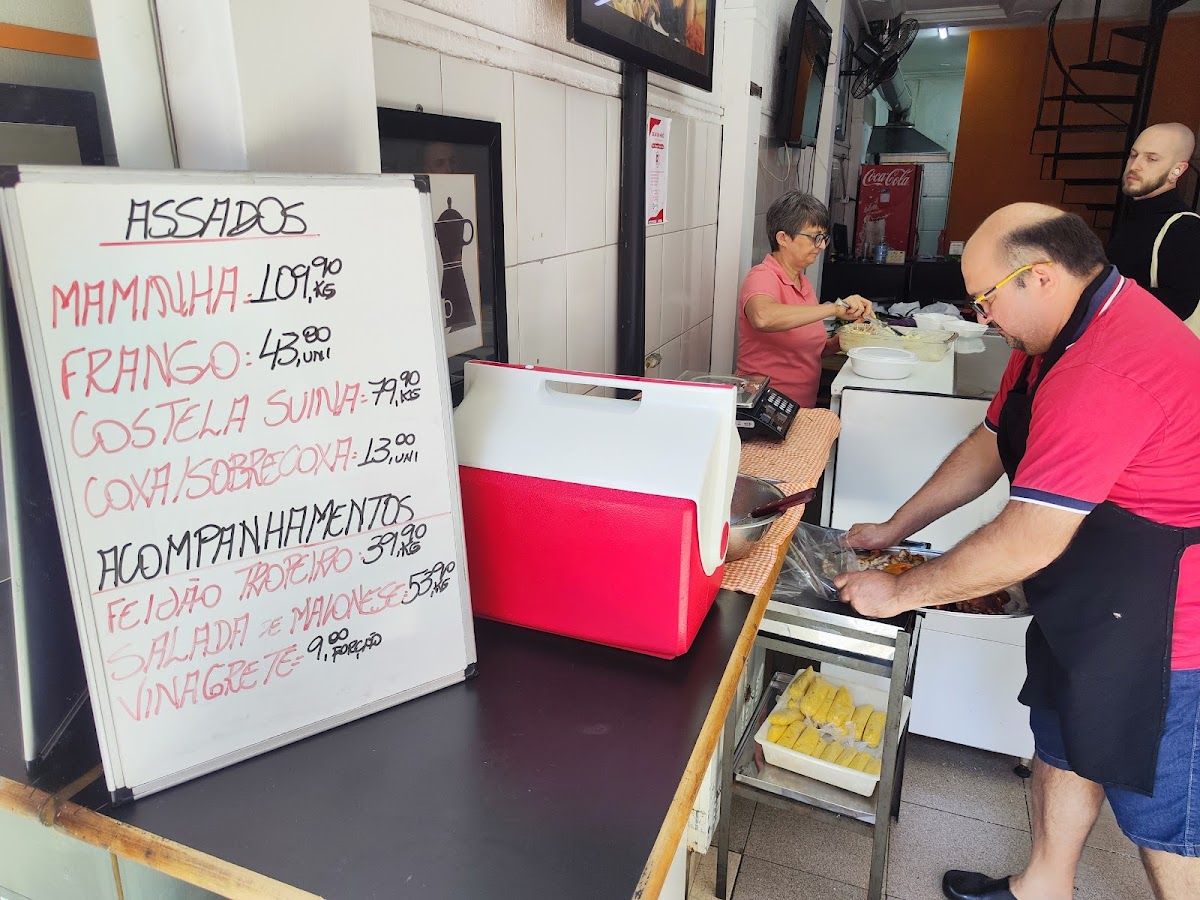 ASSADOS
MAMINHA: 109,90 KG
FRANGO: 43,80 UNI
COSTELA SUINA= 79,90 KG
COXA/SOBRECOXA= 13,00 UNI
ACOMPANHAMENTOS
FEIJÃO TROPEIRO: 39,90 KG
SALADA DE MAIONESE: 53,90 KG
VINAGRETE= 9,00 PORÇÃO
Coca-Cola